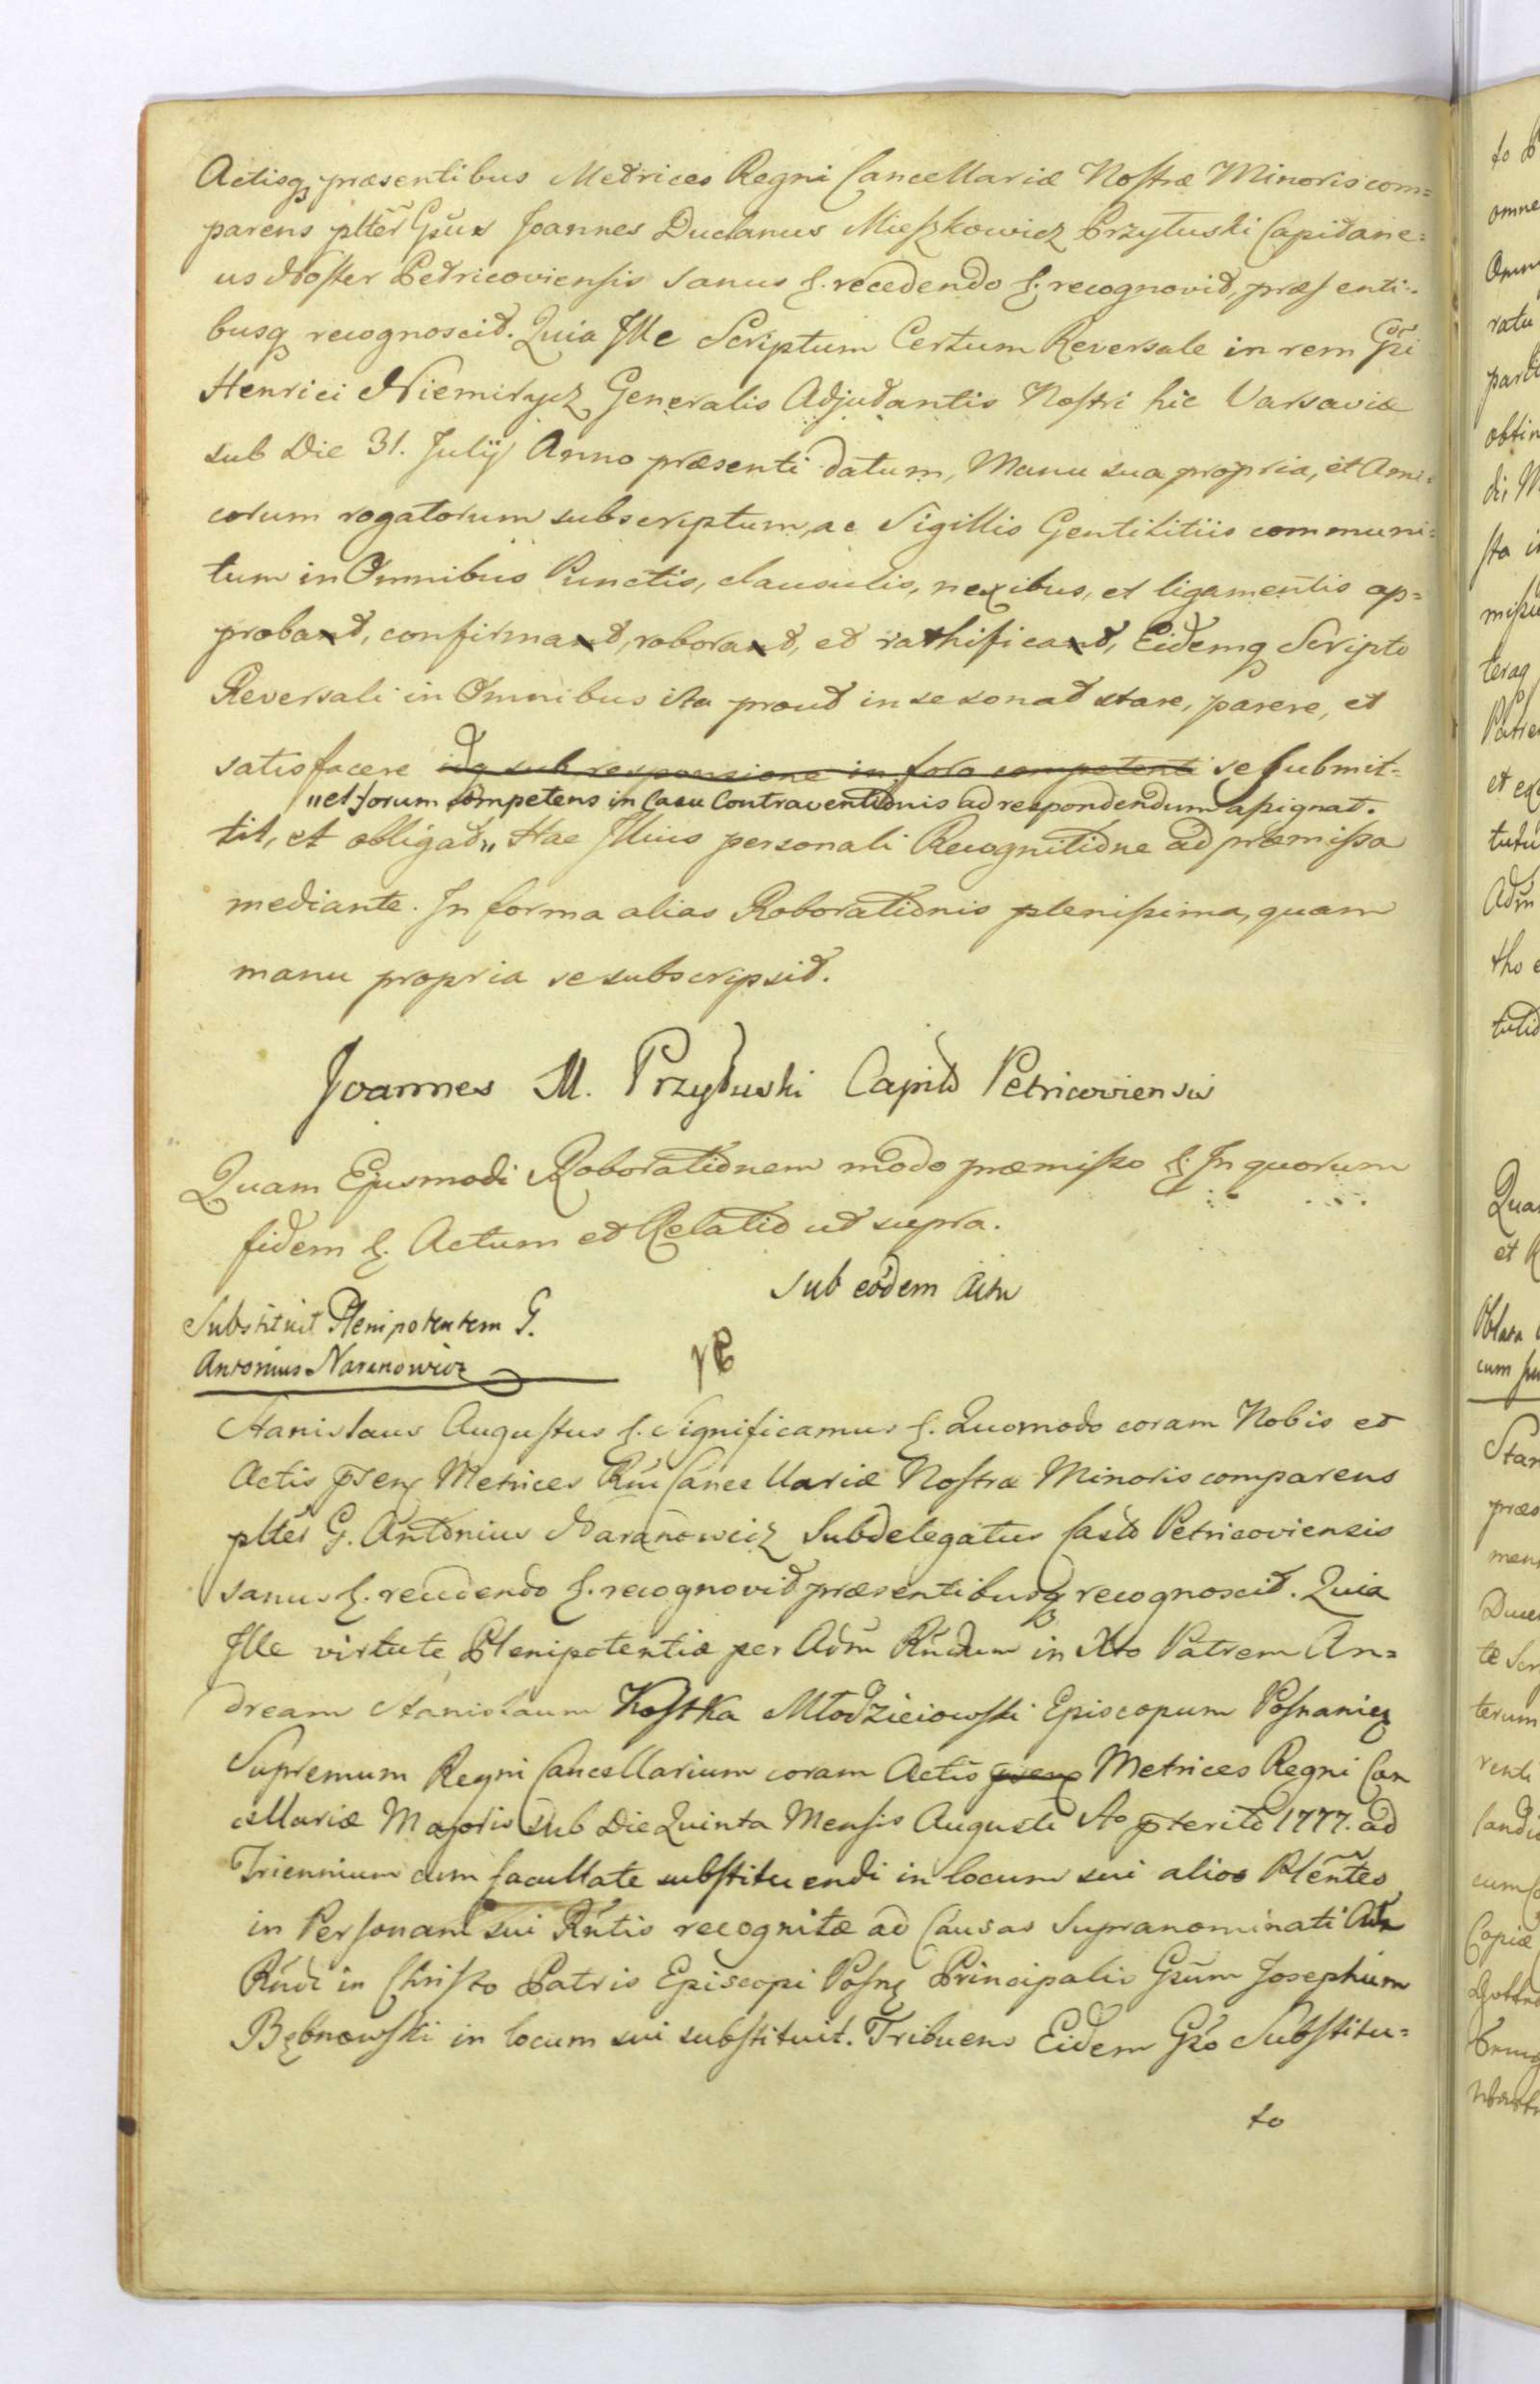 Actisq præsentibus Metrices Regni Cancellariæ Nostræ Minoris com=
parens pltẽr Gsũs Joannes Duclanus Mieszkowicz Przyłuski Capitane=
us Noster Petricoviensis sanus &. recedendo &. recognovit, præsenti=
busq recognoscit. Quia Ille Scriptum Certum Reversale in rem Gsĩ
Henrici Niemirycz Generalis Adjutantis Nostri hic Varsaviæ
sub Die 31. Julij Anno præsenti datum, Manu sua propria, et Ami=
corum rogatorum subscriptum, ac Sigillis Gentilitiis communi=
tum in Omnibus Punctis, clausulis, nexibus, et ligamentis ap=
probat, confirmat, roborat, et rathificat, Eidemq Scripto
Reversali in Omnibus ita prout in se sonat stare, parere, et
satisfacere idq sub responsione in foro competenti se submit=
"et forum competens in Casu Contraventionis ad respondendum assignat.
tit, et obligat" Hac Illius personali Recognitione ad præmissa
mediante. In forma alias Roborationis plenissima, quam
manu propria se subscripsit.
Joannes M. Przyłuski Capito Petricoviensis
Quam Ejusmodi Roborationem modo præmisso &. In quorum
fidem &. Actum et Relatio ut supra.
Sub eodem Actu
Substituit Plenipotentem G.
Antonius Naranowicz
Stanislaus Augustus &. Significamus &. Quomodo coram Nobis et
Actis psen Metrices Rni Cancellariæ Nostræ Minoris comparens
pltẽr G. Antonius Naranowicz Subdelegatus Casto Petricoviensis
sanus &. recedendo &. recognovit præsentibusq recognoscit. Quia
Ille virtute Plenipotentiæ per Adm Rndum in Xto Patrem An=
dream Stanislaum Kostka Młodzieiowski Episcopum Posnanien
Supremum Regni Cancellarium coram Actis psen Metrices Regni Can
cellariæ Majoris sub Die Quinta Mensis Augusti Ao pterito 1777. ad
Triennium cum facultate substituendi in locum sui alios Plẽntes
in Personam sui Rntis recognitæ ad Causas Supranominati Adm
Rndi in Christo Patris Episcopi Posn Principalis Gsũm Josephum
Bębnowski in locum sui substituit. Tribuens Eidem Gso Substitu=
to